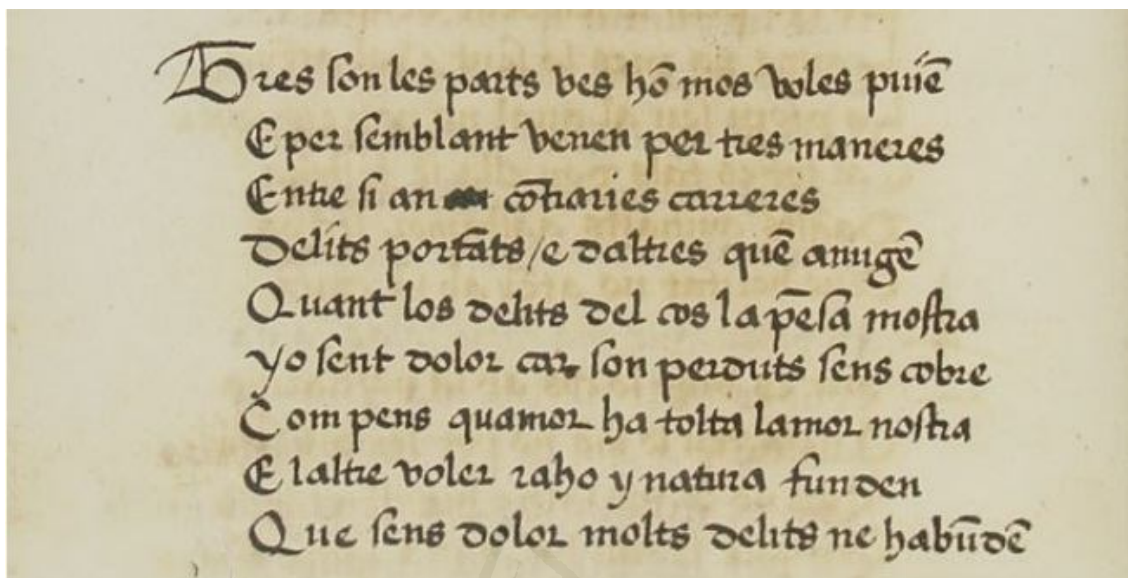 Tres son les parts ves hō mos voles puiē
E per semblant venen per tres maneres
Entre si an cōtraries carreres
Delits portāts / e daltres quē anugē
Quant los delits del cos la pēsa mostra
yo sent dolor car son perduts sens cobre
Com pens quamor ha tolta lamor nostra
E laltre voler raho y natura funden
Que sens dolor molts delits ne habūdē